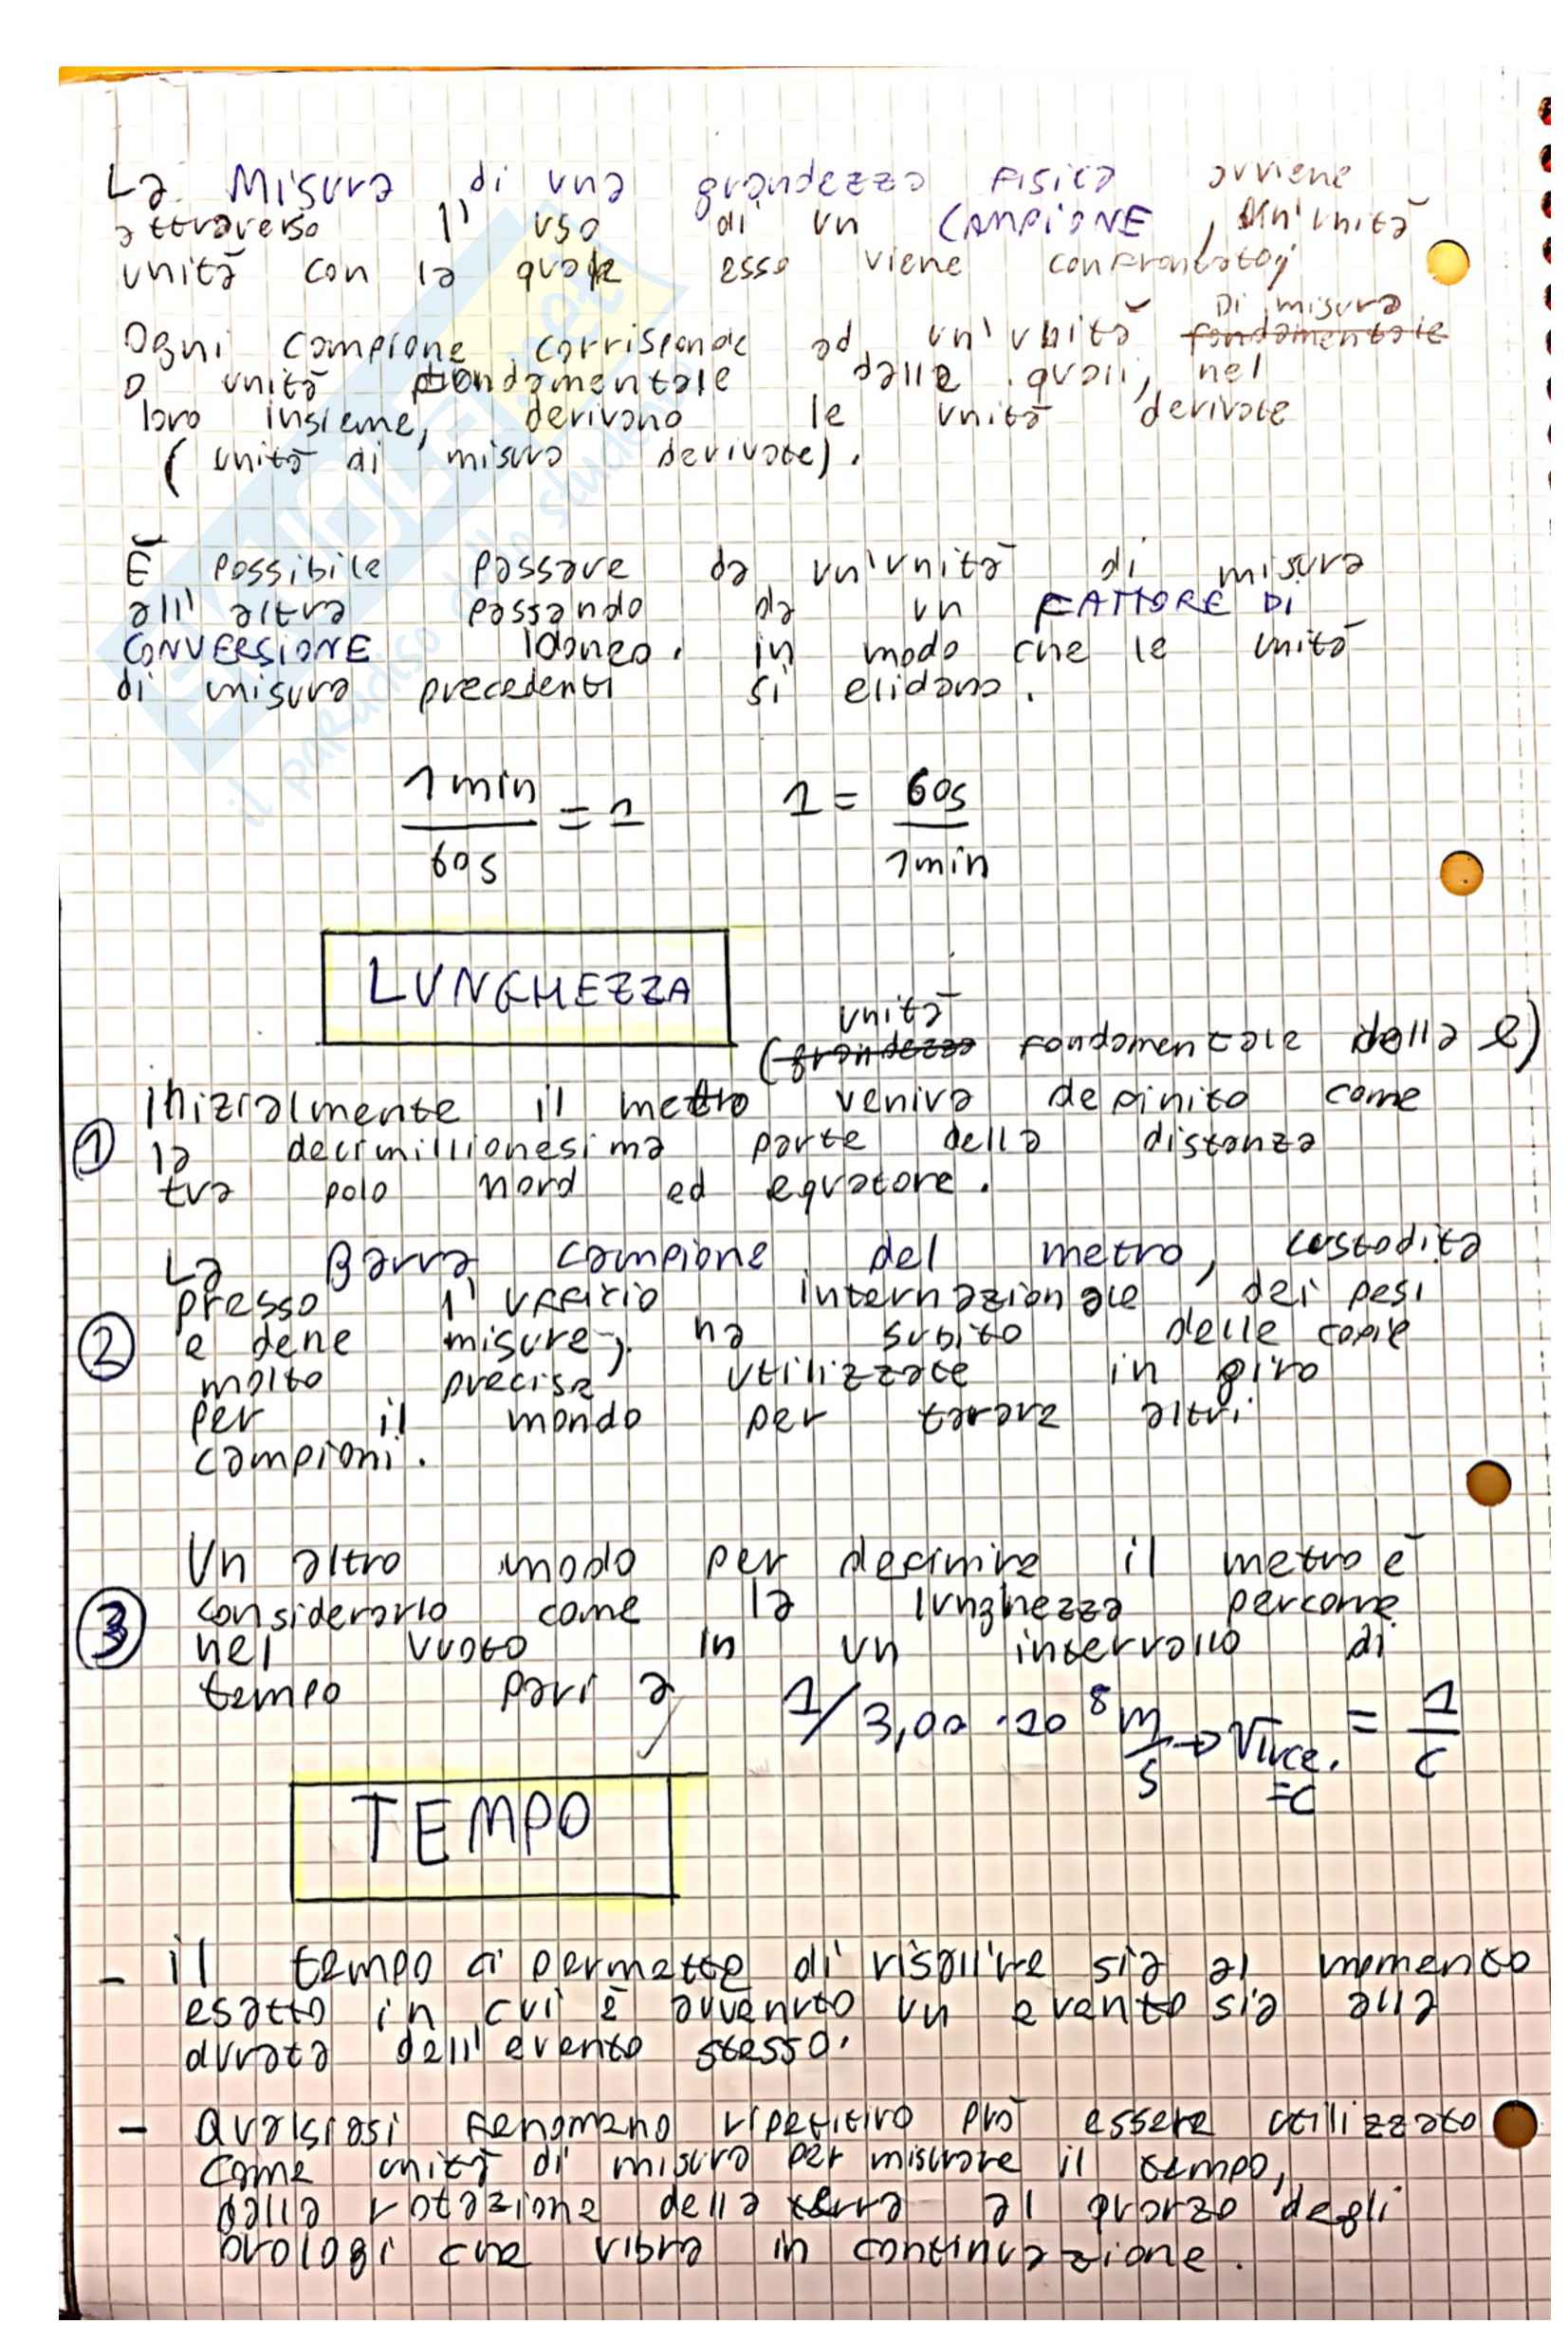 La Misura di una grandezza fisica avviene
attraverso l'uso di un CAMPIONE, un'unità
unità con la quale esse viene confrontato;
Di misura
Ogni campione corrisponde ad un'unità fondamentale
o unità fondamentale dalle quali, nel
loro insieme, derivano le unità derivate
(unità di misura derivate).
È possibile passare da un'unità di misura
all'altra passando da un FATTORE DI
CONVERSIONE idoneo. in modo che le unità
di misura precedenti si elidano.
1 min / 60s = 1    1 = 60s / 1min
LUNGHEZZA
unità
(grandezza fondamentale della l)
Inizialmente il metro veniva definito come
① la decimillionesima parte della distanza
tra polo nord ed equatore.
La Barra campione del metro, custodita
presso l'ufficio internazionale dei pesi
② e delle misure, ha subito delle copie
molto precise utilizzate in giro
per il mondo per tarare altri
campioni.
Un altro modo per definire il metro è
③ considerarlo come la lunghezza percorre
nel vuoto in un intervallo di
tempo pari a 1/3,00 · 10⁸ m/s → Vluce. = 1/c
=c
TEMPO
- il tempo ci permette di risalire sia al momento
esatto in cui è avvenuto un evento sia alla
durata dell'evento stesso.
- Qualsiasi fenomeno ripetitivo può essere utilizzato
come unità di misura per misurare il tempo,
dalla rotazione della terra al quarzo degli
orologi che vibra in continuazione.
il paradiso dello studente